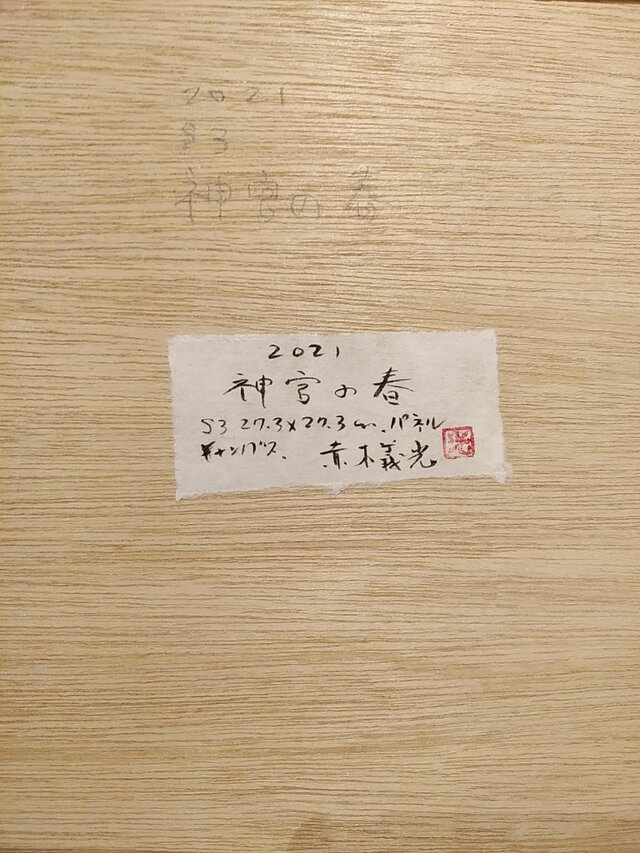 2021
S3
神宮の春
2021
神宮の春
S3 27.3×27.3cm. パネル
キャンバス. 赤木義光